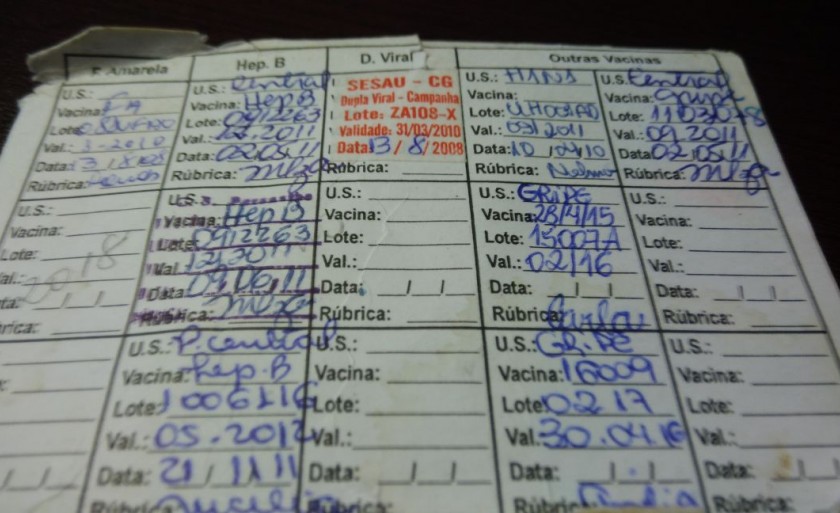 F. Amarela
U.S.:
Vacina:
Lote:
Val.: 3-2010
Data:
Rúbrica:
U.S.:
Vacina:
Lote:
2018
Hep. B
U.S.: Central
Vacina: Hep B
Lote: 0912263
Val.: 12.2011
Data: 02/05/11
Rúbrica:
U.S.:
Vacina: Hep B
Lote: 0912263
Val.: 12/2011
Data: 09/06/11
Rúbrica:
U.S.: P. central
Vacina: Hep. B
Lote:
Val.: 05.2012
Data: 21/11/11
Rúbrica:
D. Viral
SESAU - CG
Dupla Viral - Campanha
Lote: ZA108-X
Validade: 31/03/2010
Data: 13/8/2008
Rúbrica:
U.S.:
Vacina:
Lote:
Val.:
Data: __/__/__
Rúbrica:
U.S.:
Vacina:
Lote:
Val.:
Data: __/__/__
Rúbrica:
Outras Vacinas
U.S.: H1N1
Vacina:
Lote:
Val.: 03/2011
Data: 10/04/10
Rúbrica:
U.S.: GRIPE
Vacina: 28/4/15
Lote: 15007A
Val.: 02/16
Data: __/__/__
Rúbrica:
U.S.: GRIPE
Vacina: 16009
Lote: 02 17
Val. 30.04.16
Data: __/__/__
Rúbric
U.S. Central
Vacina: Gripe
Lote:
Val.: 09.2011
Data: 02/05/11
Rúbrica:
U.S.:
Vacina:
Lote:
Val.:
Data: __/__/__
Rúbrica:
U.S.:
Vacina:
Lote:
Val.:
Data: __/__/__
Rúbrica: